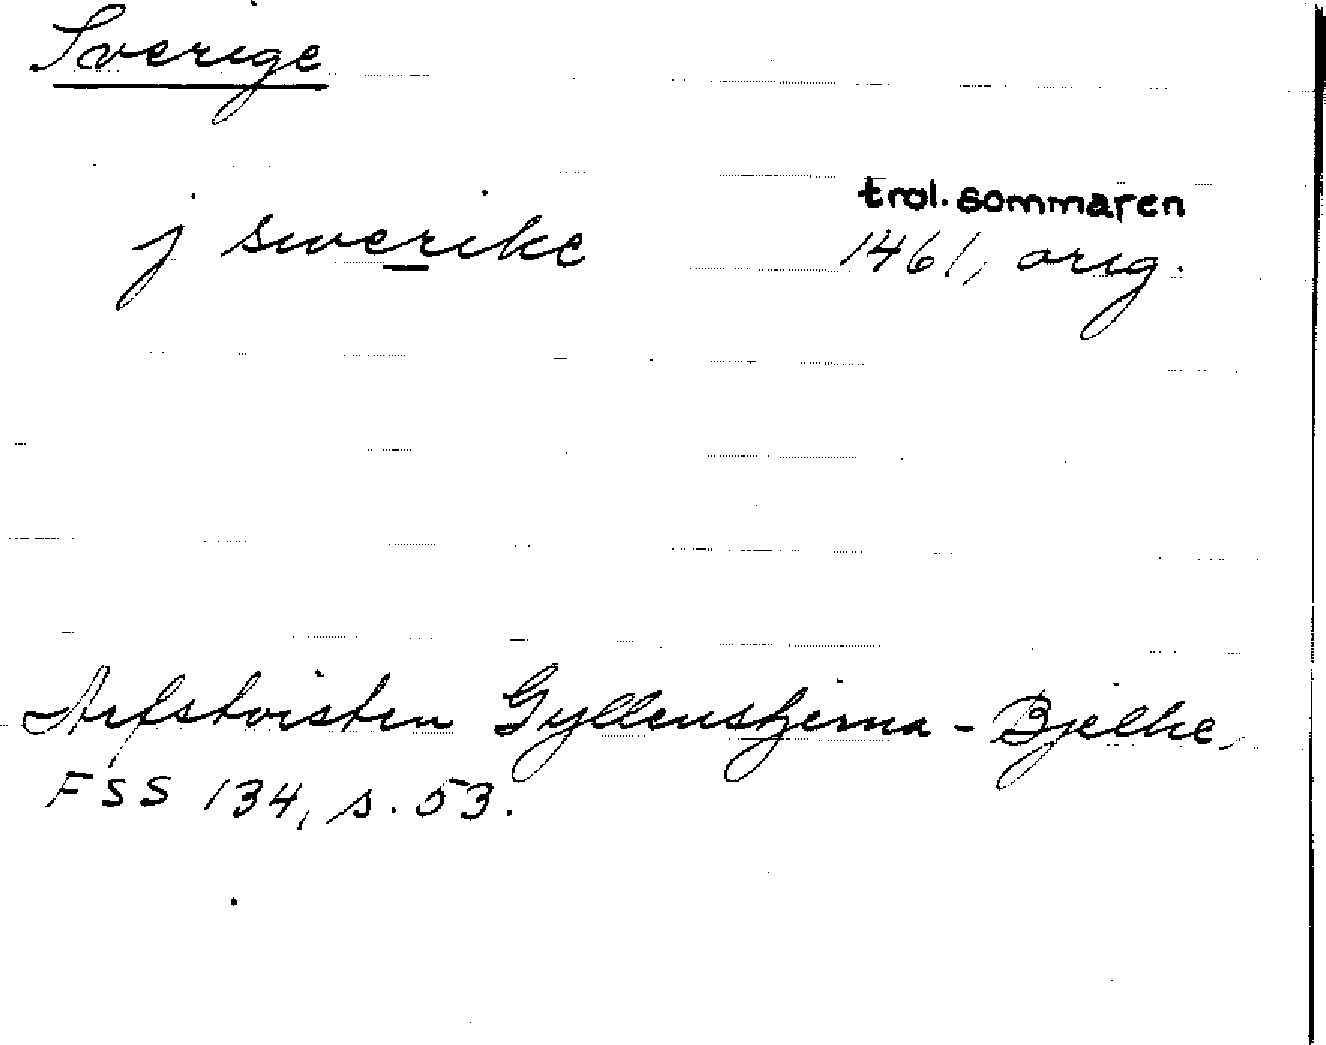 Sverige
trol. sommaren
j swerike 1461, orig.
Arfstvisten Gyllenstjerna - Bjelke,
FSS 134, s. 53.